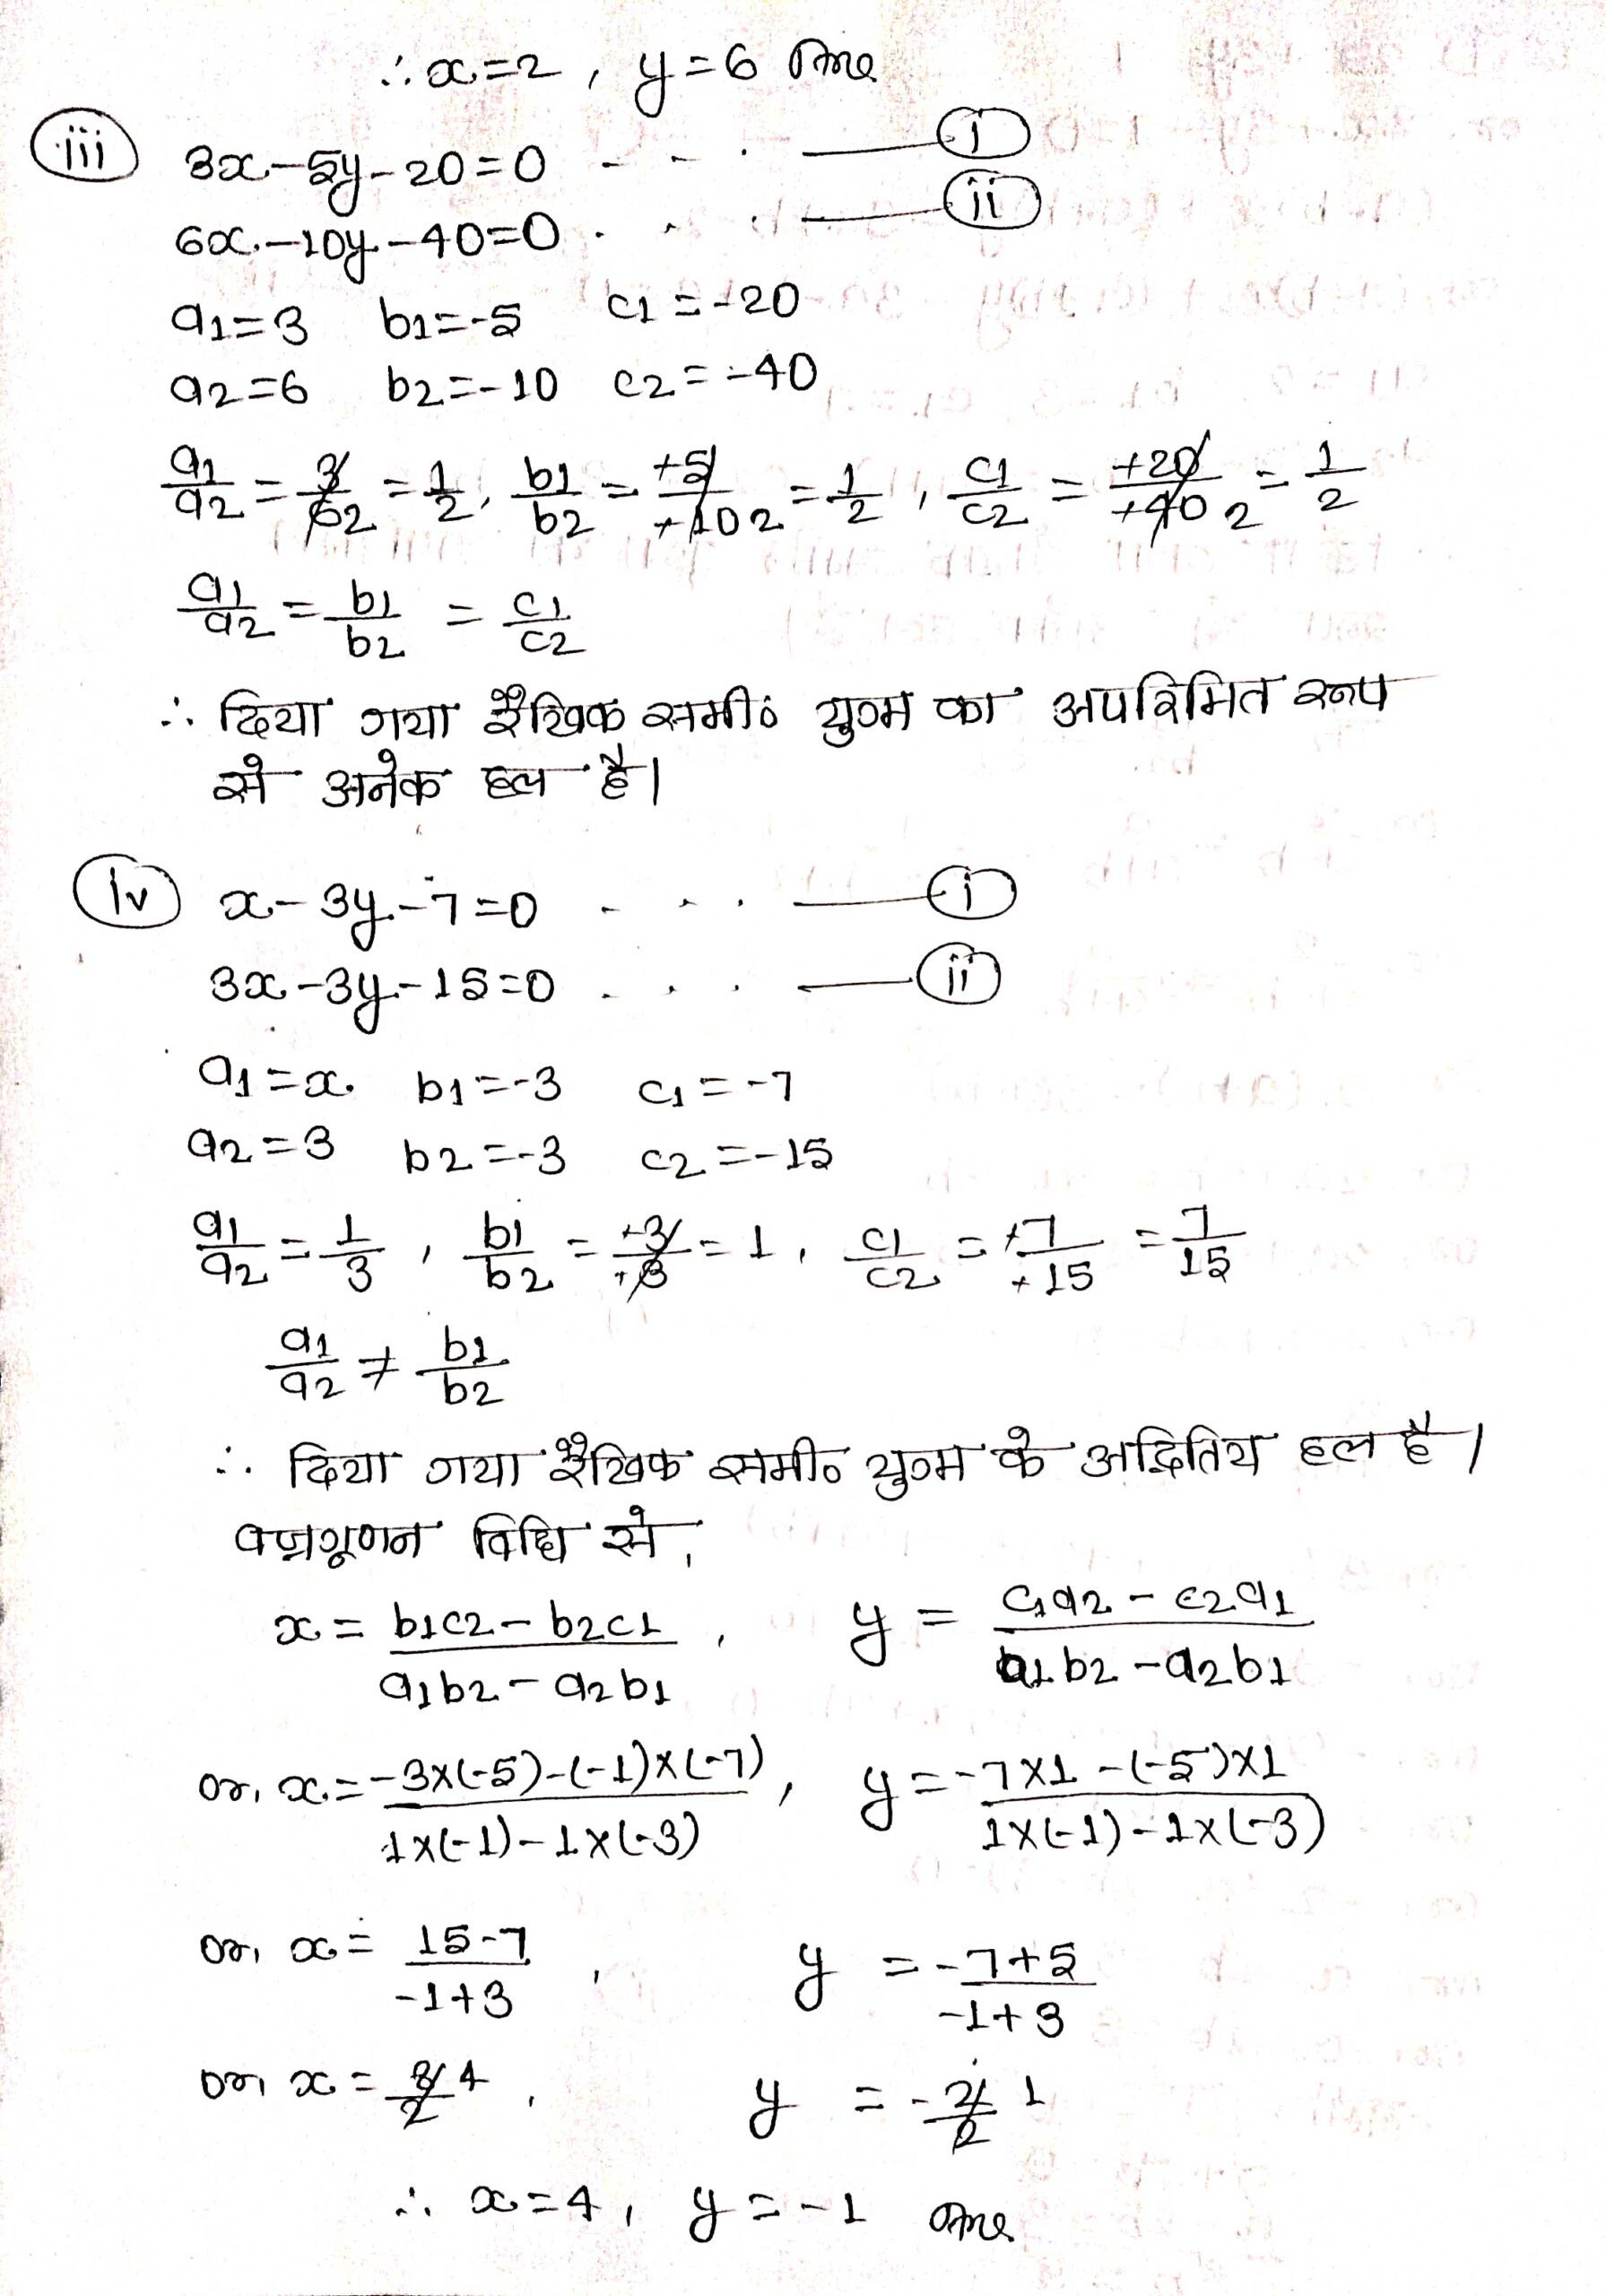 ∴ x=2, y=6 Ans
(iii) 3x-5y-20=0 - - · —— (i)
6x-10y-40=0 · · · —— (ii)
a1=3 b1=-5 c1=-20
a2=6 b2=-10 c2=-40
a1/a2 = 3/62 = 1/2, b1/b2 = +5/+102 = 1/2, c1/c2 = +20/+402 = 1/2
a1/a2 = b1/b2 = c1/c2
∴ दिया गया रैखिक समी० युग्म का अपरिमित रूप
से अनेक हल है।
(iv) x-3y-7=0 - · · —— (i)
3x-3y-15=0 · · · —— (ii)
a1=x b1=-3 c1=-7
a2=3 b2=-3 c2=-15
a1/a2 = 1/3, b1/b2 = +3/+3 = 1, c1/c2 = +7/+15 = 7/15
a1/a2 ≠ b1/b2
∴ दिया गया रैखिक समी० युग्म के अद्वितिय हल है।
वज्रगूणन विधि से,
x = b1c2-b2c1/a1b2-a2b1, y = c1a2-c2a1/a1b2-a2b1
or, x = -3x(-5)-(-1)x(-7)/1x(-1)-1x(-3), y = -7x1-(-5)x1/1x(-1)-1x(-3)
or, x = 15-7/-1+3, y = -7+5/-1+3
or, x = 8/2 4, y = -2/2 1
∴ x=4, y=-1 Ans